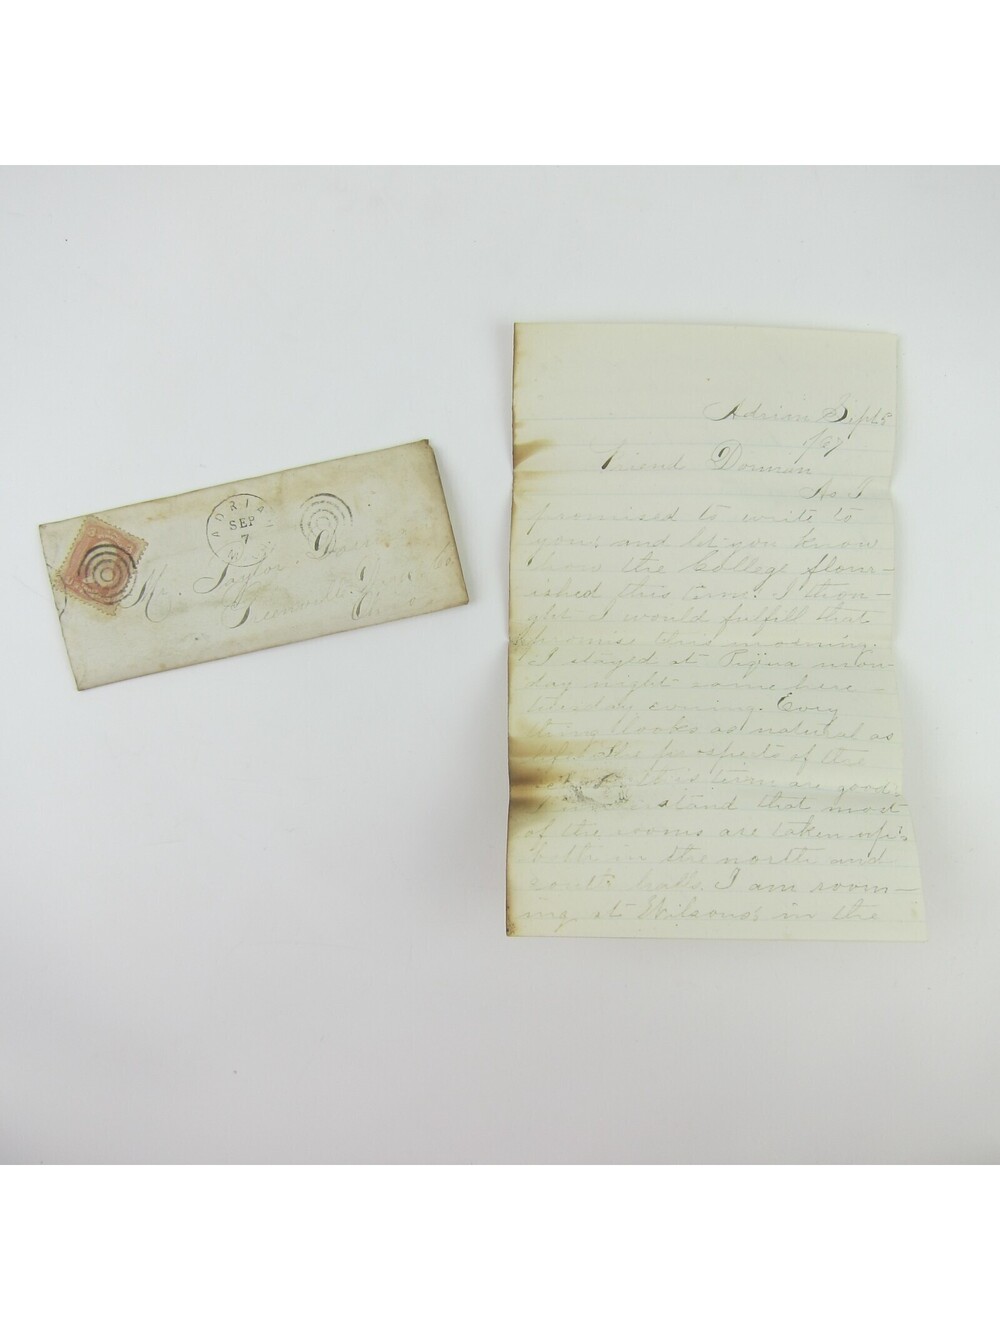 ADRIAN
SEP
7
Mr. Taylor Dorman
Greenville
Adrian Sept 5
/67
Friend Dorman
As I
promised to write to
you: and let you know
how the College flour-
ished this term. I thou-
ght I would fulfill that
promise this morning.
I stayed at Piqua mon-
day night came here
tuesday evening. Every
thing looks as natural as
life. The prospects of the
this term are good:
I understand that most
of the rooms are taken up:
both in the north and
south halls. I am room-
ing at Wilsons in the